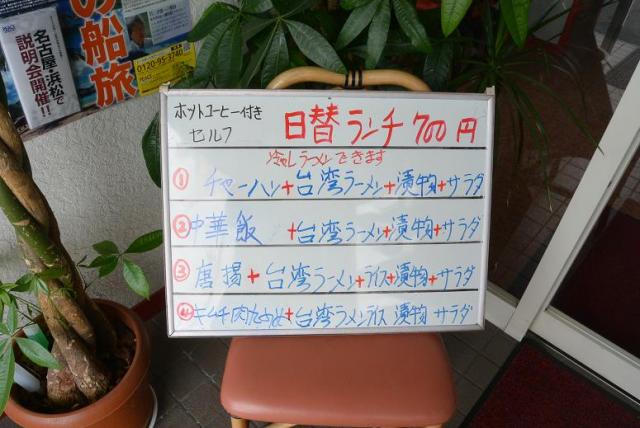 の船旅
名古屋・浜松で
説明会開催!!
0120-95-3740
ホットコーヒー付き
セルフ
日替ランチ 700円
冷しラーメンできます
① チャーハン+台湾ラーメン+漬物+サラダ
② 中華飯 +台湾ラーメン+漬物+サラダ
③ 唐揚+台湾ラーメン+ライス+漬物+サラダ
④ キムチ肉炒め+台湾ラーメンライス 漬物 サラダ